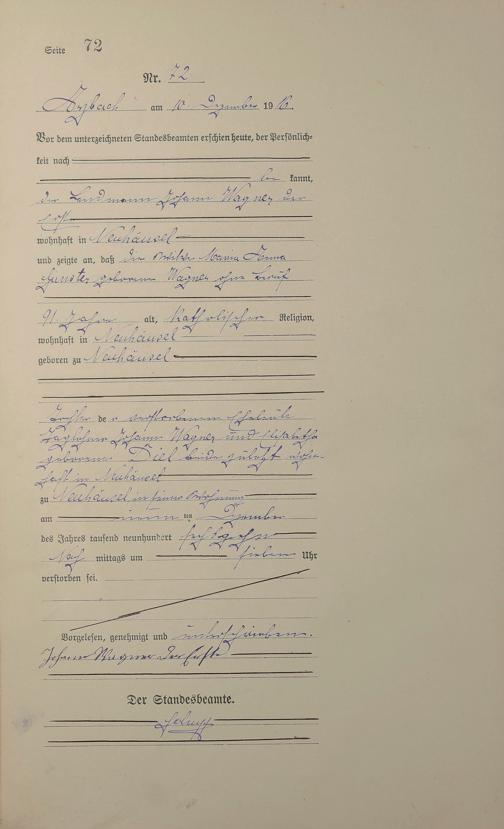 Seite 72
Nr. 72
Arzbach am 10 Dezember 1916.
Vor dem unterzeichneten Standesbeamten erschien heute, der Persönlich-
keit nach
be kannt,
der Landmann Johann Wagner der
erste
wohnhaft in Neuhäusel
und zeigte an, daß die Witwe Maria Anna
geborene Wagner ohne Beruf
91 Jahre alt, katholischer Religion,
wohnhaft in Neuhäusel
geboren zu Neuhäusel
Tochter de r verstorbenen Eheleute
Taglöhner Johann Wagner und Elisabetha
geborene Diel beide zuletzt wohn-
haft in Neuhäusel
zu Neuhäusel in seiner Wohnung
am neunten Dezember
des Jahres tausend neunhundert sechzehn
Nach mittags um sieben Uhr
verstorben sei.
Vorgelesen, genehmigt und unterschrieben.
Johann Wagner der Erste
Der Standesbeamte.